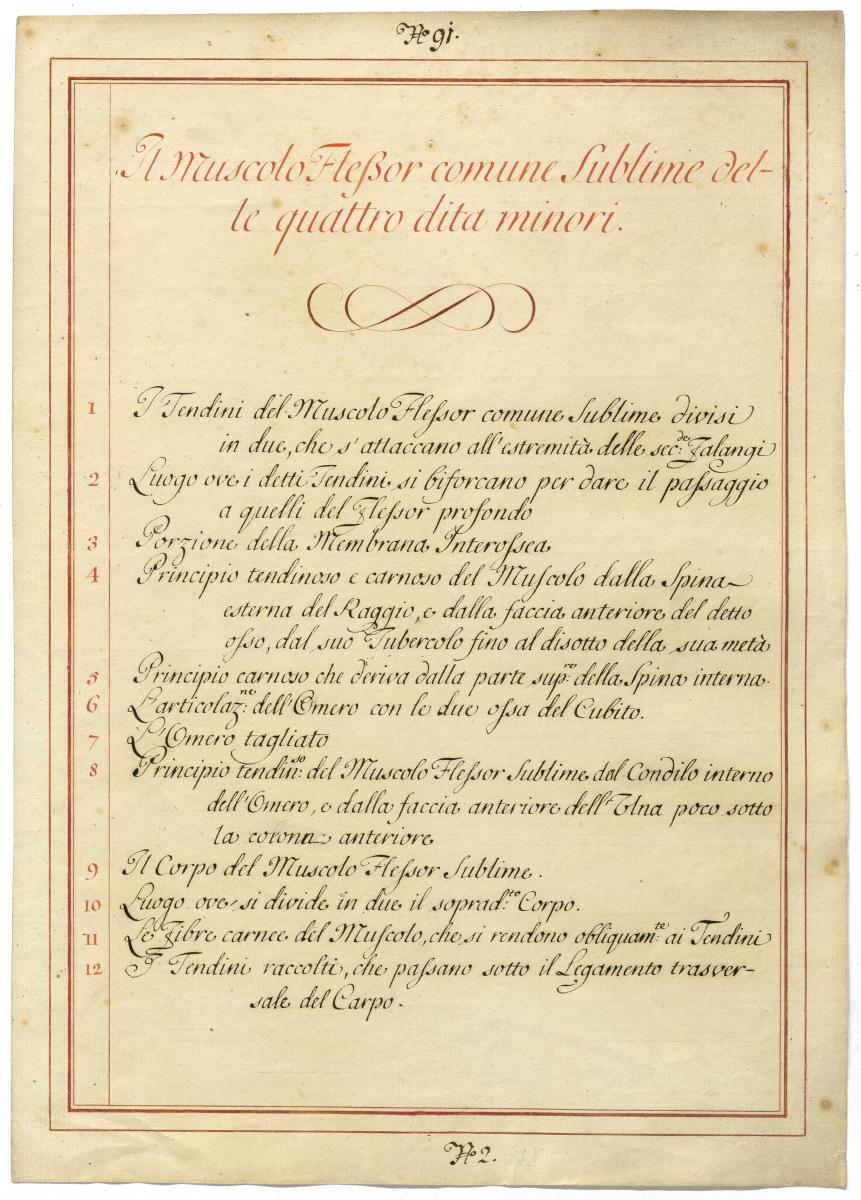 No 91.
Il Muscolo Fleßor comune Sublime del-
le quattro dita minori.
1 I Tendini del Muscolo Flessor comune Sublime divisi
in due, che s'attaccano all'estremità delle sec:de Falangi
2 Luogo ove i detti Tendini si biforcano per dare il passaggio
a quelli del Flessor profondo
3 Porzione della Membrana Interossea
4 Principio tendinoso e carnoso del Muscolo dalla Spina
esterna del Raggio, e dalla faccia anteriore del detto
osso, dal suo Tubercolo fino al disotto della sua metà
5 Principio carnoso che deriva dalla parte sup:re della Spina interna.
6 L'articolaz:ne dell'Omero con le due ossa del Cubito.
7 L'Omero tagliato
8 Principio tendin:so del Muscolo Flessor Sublime dal Condilo interno
dell'Omero, e dalla faccia anteriore dell'Ulna poco sotto
la corona anteriore
9 Il Corpo del Muscolo Flessor Sublime.
10 Luogo ove si divide in due il soprad:to Corpo.
11 Le Fibre carnee del Muscolo, che si rendono obliquam:te ai Tendini
12 I Tendini raccolti, che passano sotto il Legamento trasver-
sale del Carpo.
No 2.